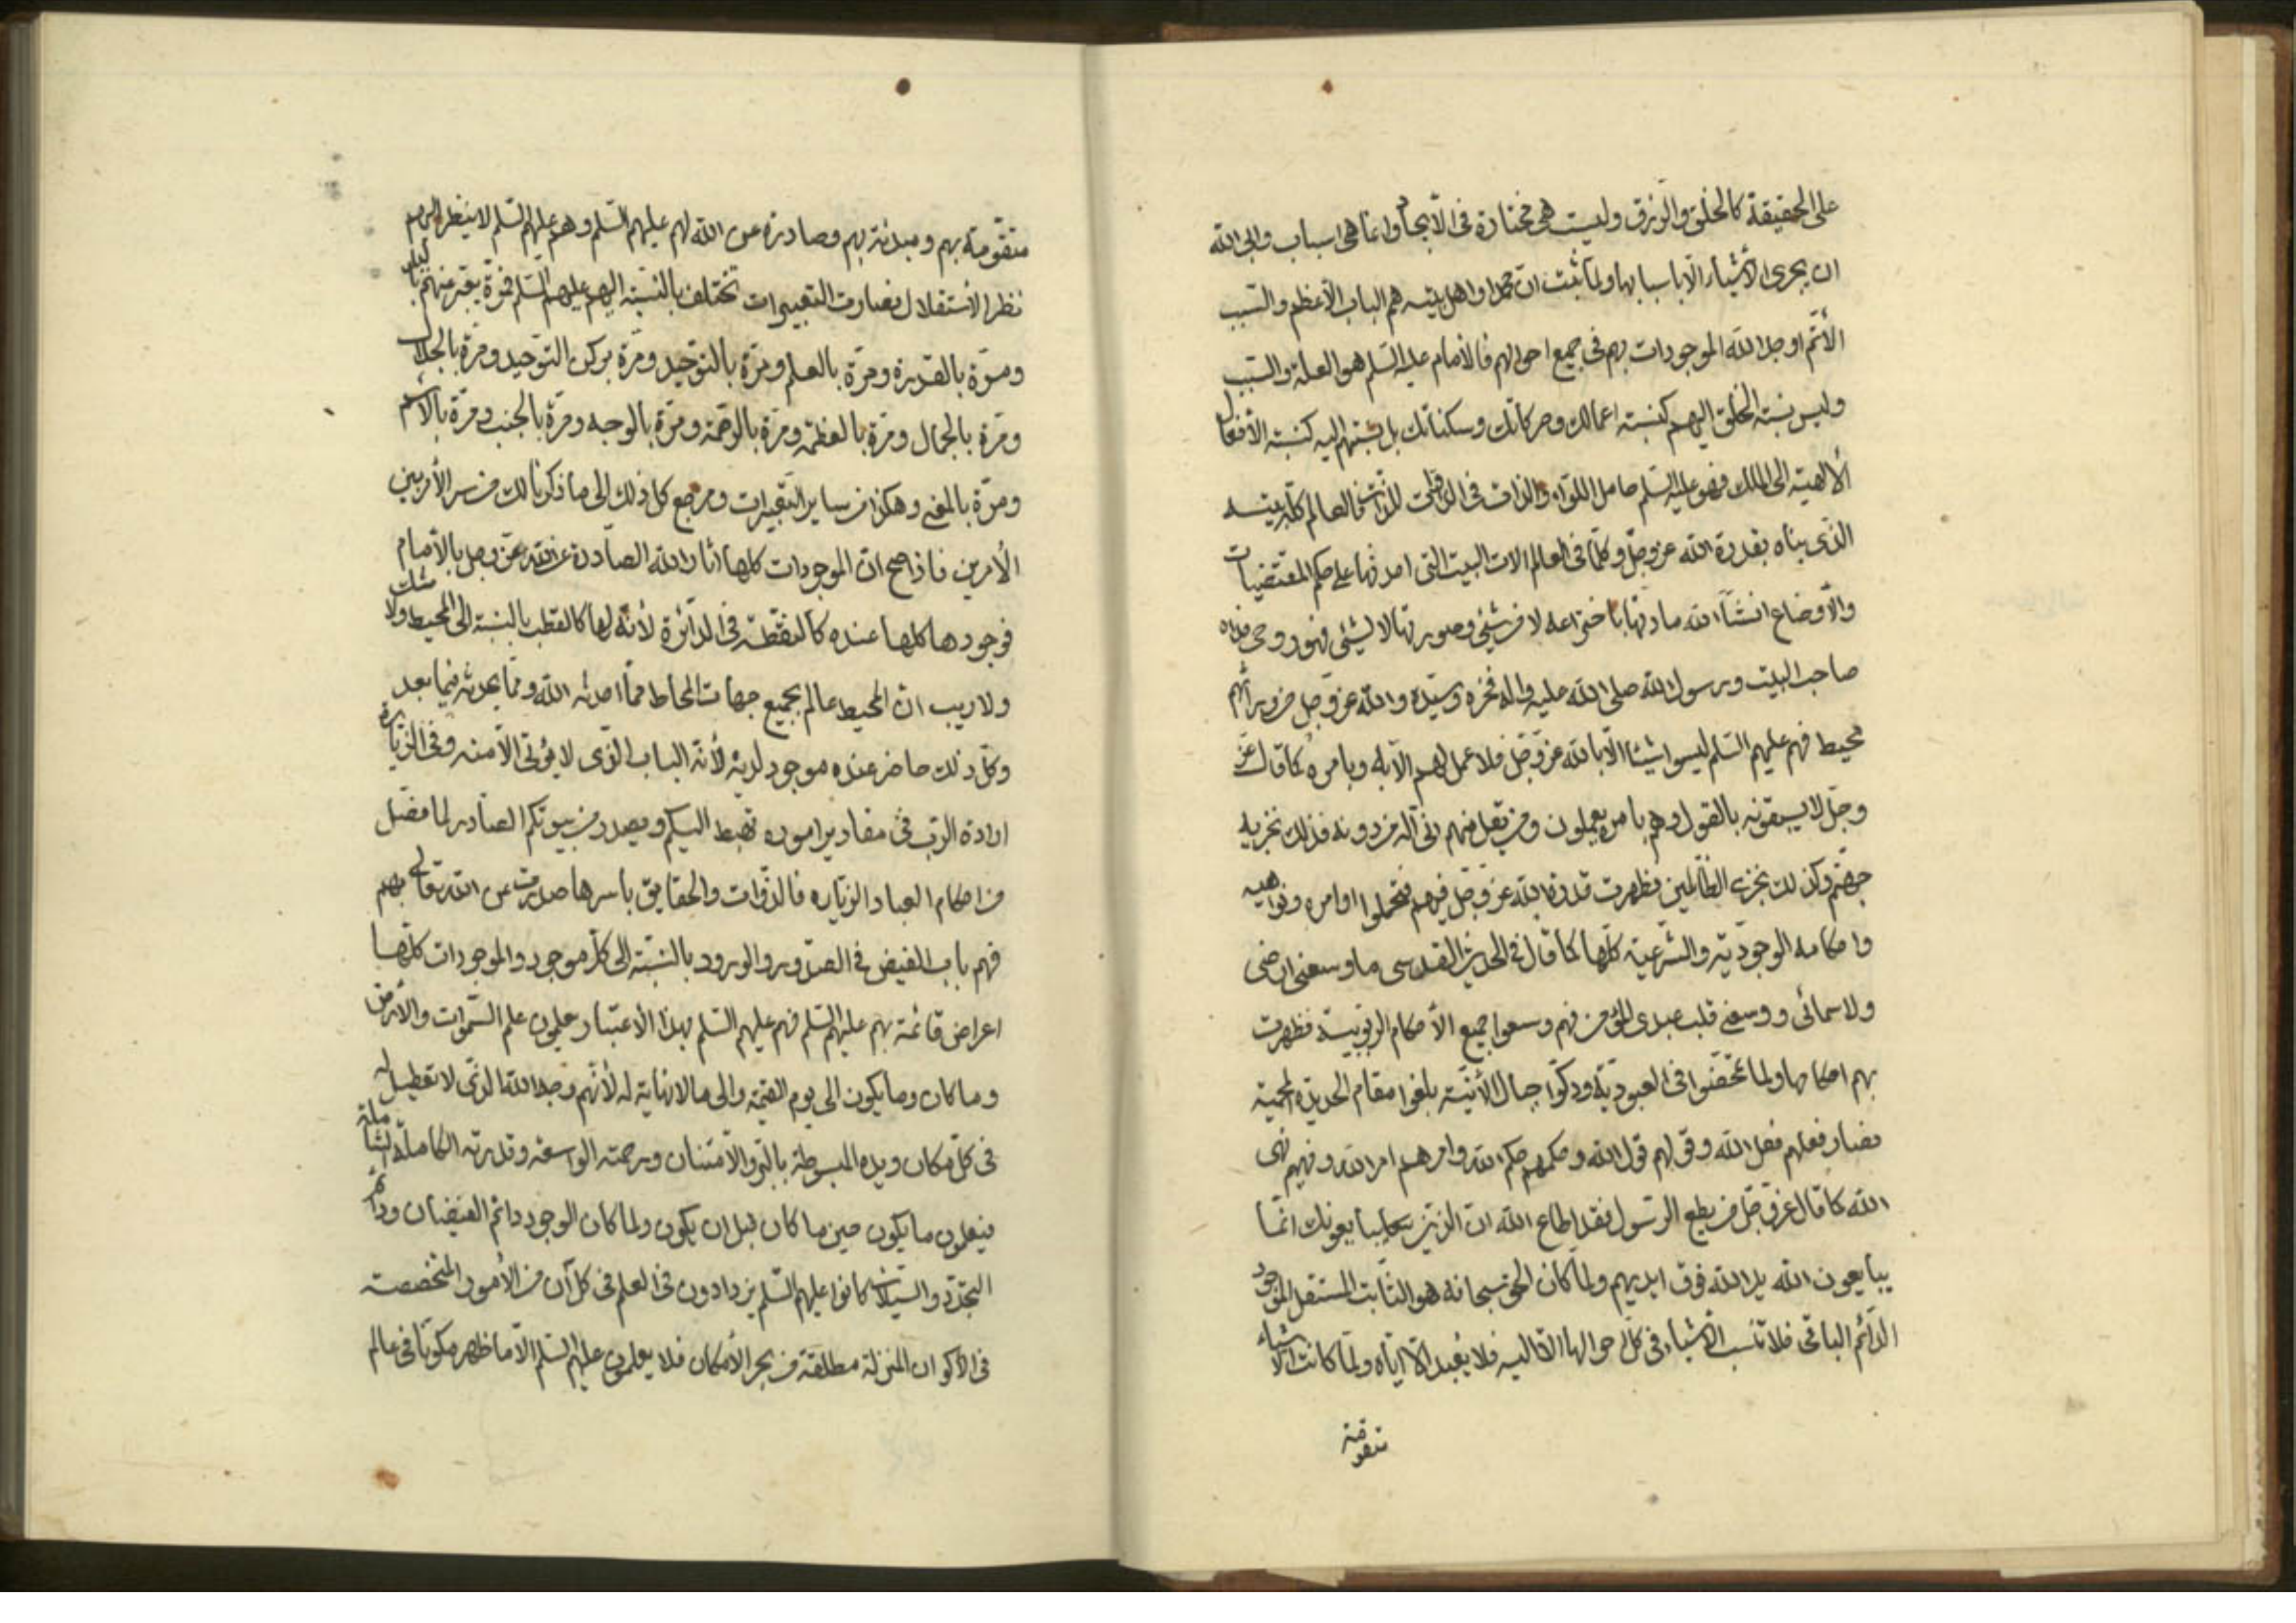 على الحقيقة كالخلق والرزق وليست هي مختارة في الأيجاد وانما هي اسباب وابى الله
ان يجرى الاشياء الا باسبابها ولما ثبت ان محمدا واهل بيته هم الباب الأعظم والسبب
الأتم اوجد الله الموجودات بهم في جميع احوالهم فالأمام عليه السلم هو العلة والسبب
وليس نسبة الخلق اليهم كنسبة اعمالك وحركاتك وسكناتك بل نسبتهم اليه كنسبة الأفعال
الألهية الى الملك فهو عليه السلم حامل اللواء فالعالم كله بيته
الذى بناه بقدرة الله عز وجل وكلما في العالم الات البيت التى احدثها على حكم المقتضيات
والأوضاع انشأ الله مادتها باختراعه لا من شئ وصورتها لا لشئ فهو روحى فداه
صاحب البيت ورسول الله صلى الله عليه واله فخره وسيده والله عز وجل من ورائهم
محيط فهم عليهم السلم ليسوا شيئا الا بالله عز وجل فلا عمل لهم الا به وبامره كما قال عز
وجل لا يسبقونه بالقول وهم بامره يعملون ومن يقل منهم انى اله من دونه فذلك نجزيه
جهنم وكذلك نجزى الظالمين فظهرت قدرة الله عز وجل فيهم فتحملوا اوامره ونواهيه
واحكامه الوجودية والشرعية كلها كما قال في الحديث القدسى ما وسعنى ارضى
ولا سمائى ووسعنى قلب عبدى المؤمن فهم وسعوا جميع الأحكام الربوبية فظهرت
بهم احكامها ولما تحققوا في العبودية ودكوا جبال الأنية بلغوا مقام الحديدة المحمية
فصار فعلهم فعل الله وقولهم قول الله وحكمهم حكم الله وامرهم امر الله ونهيهم نهى
الله كما قال عز وجل من يطع الرسول فقد اطاع الله ان الذين يبايعونك انما
يبايعون الله يد الله فوق ايديهم ولما كان الحق سبحانه هو الثابت المستقل الموجود
الدائم الباقى فلا تنسب الأشياء في كل احوالها الا اليه فلا يعبد الا اياه ولما كانت الأشياء
متقومة
متقومة بهم ومبدئة بهم وصادرة عن الله لهم عليهم السلم وهم عليهم السلم لا ينظر اليهم
نظر الأستقلال فصارت التعبيرات تختلف بالنسبة اليهم عليهم السلم فمرة يعبر عنهم
ومرة بالقدرة ومرة بالعلم ومرة بالتوحيد ومرة بركن التوحيد ومرة بالجلال
ومرة بالجمال ومرة بالعظمة ومرة بالرحمة ومرة بالوجه ومرة بالجنب ومرة بالاسم
ومرة بالمعنى وهكذا من ساير التعبيرات ومرجع كل ذلك الى ما ذكرنا لك من سر الأمر بين
الأمرين فاذا صح ان الموجودات كلها اثار الله الصادرة عن الله عز وجل بالأمام
فوجودها كلها عنده كالنقطة في الدائرة لأنه لها كالقطب بالنسبة الى المحيط ولا شك
ولا ريب ان المحيط عالم بجميع جهات المحاط مما احدثه الله ومما يحدثه فيما بعد
وكل ذلك حاضر عنده موجود لديه لأنه الباب الذى لا يؤتى الا منه وفى الزيارة
ارادة الرب في مقادير اموره تهبط اليكم ويصدر من بيوتكم الصادر لما فصل
من احكام العباد الزيارة فالذوات والحقايق باسرها صدرت من الله تعالى بهم
فهم باب الفيض في الصدور والورود بالنسبة الى كل موجود والموجودات كلها
اعراض قائمة بهم عليهم السلم فهم عليهم السلم بهذا الأعتبار يعلمون علم السموات والأرض
وما كان وما يكون الى يوم القيمة والى ما لا نهاية له لأنهم وجه الله الذى لا تعطيل له
في كل مكان ويده المبسوطة بالبر والأمتنان ورحمته الواسعة وقدرته الكاملة الشاملة
فيعلمون ما يكون حين ما كان قبل ان يكون ولما كان الوجود دائم الفيضان ودائم
التجدد والسيلان كانوا عليهم السلم يزدادون في العلم في كل آن من الأمور المتخصصة
في الأكوان المنزلة مطلقة من بحر الأمكان فلا يعلمون عليهم السلم الا ما ظهر مكونا في عالم